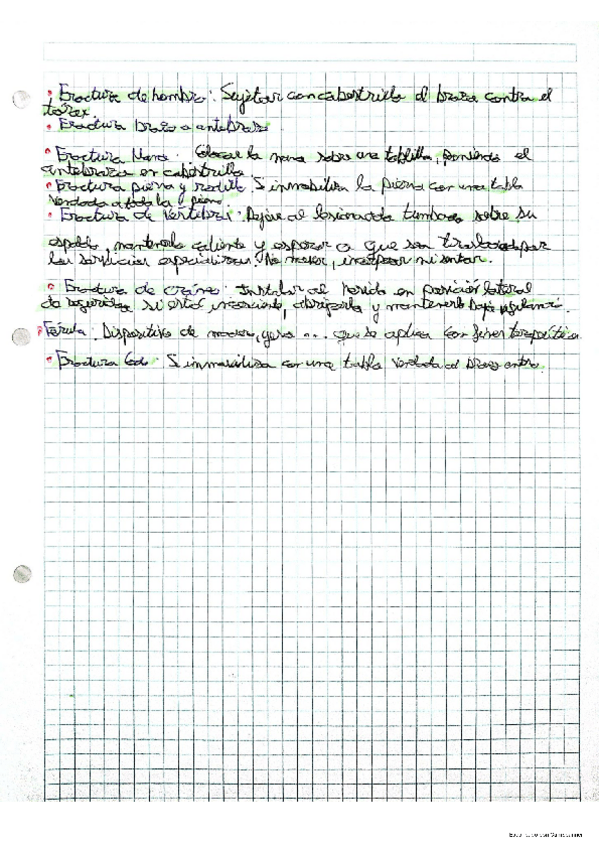 • Fractura de hombro: Sujetar con cabestrillo el brazo contra el
tórax.
• Fractura brazo o antebrazo
• Fractura Mano: Colocar la mano sobre una tablilla, poniendo el
antebrazo en cabestrillo
• Fractura pierna y rodilla: Sinmobiliza la pierna con una tabla
vendada a toda la pierna.
• Fractura de Vertebras: Dejar al lesionado tumbado sobre su
espalda, mantenerlo caliente y esperar a que sea trasladado por
los servicios especializados. No mover, incorporar ni sentar.
• Fractura de cráneo: Instalar al herido en posición lateral
de seguridad si está inconsciente, abrigarlo y mantenerlo bajo vigilancia.
• Férula: Dispositivo de madera, yeso ... que se aplica con fines terapéuticos
• Fractura Codo: Sinmobiliza con una tabla vendada al brazo entero.